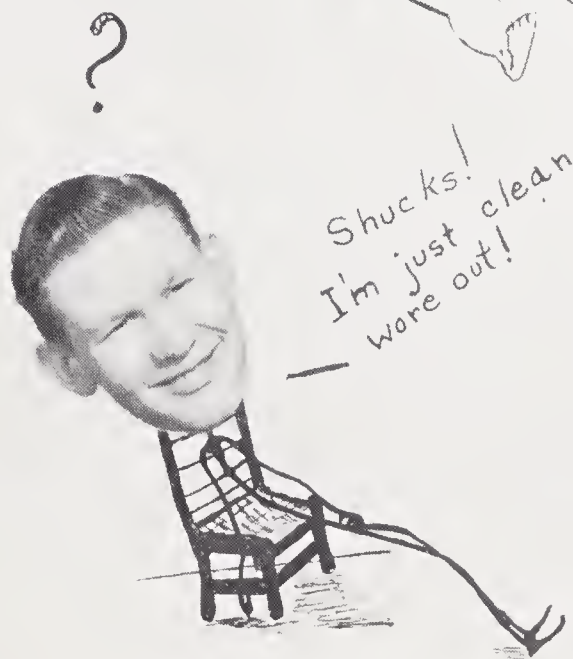 ?
Shucks!
I'm just clean
wore out!